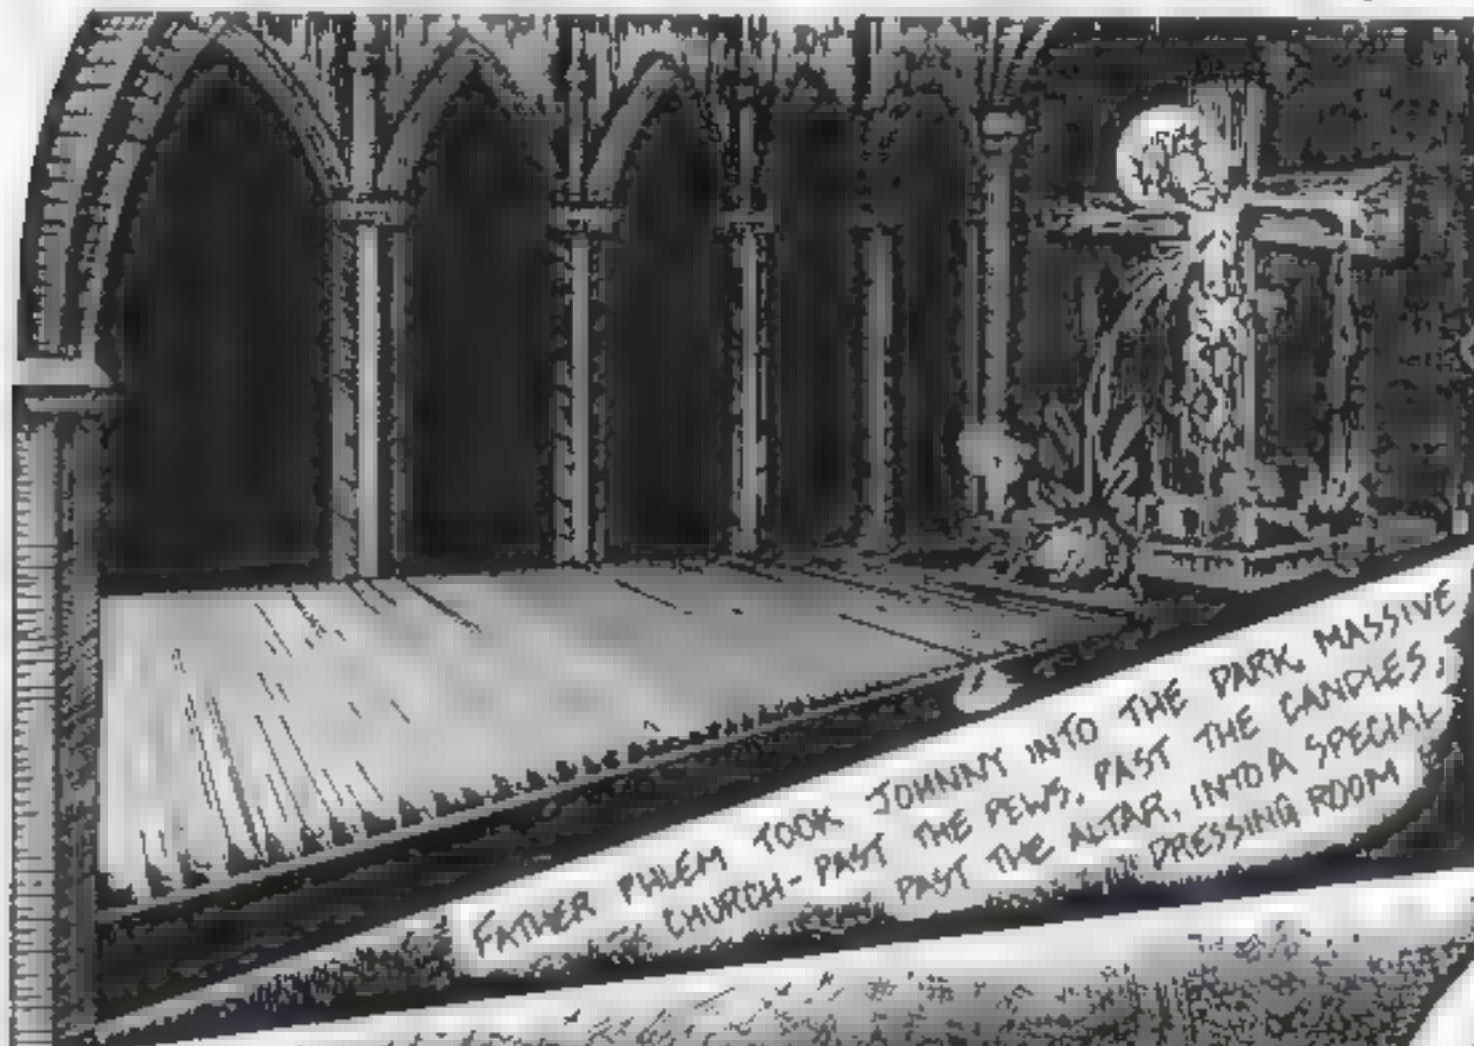 FATHER PHLEM TOOK JOHNNY INTO THE DARK, MASSIVE
CHURCH - PAST THE PEWS, PAST THE CANDLES,
PAST THE ALTAR, INTO A SPECIAL
DRESSING ROOM